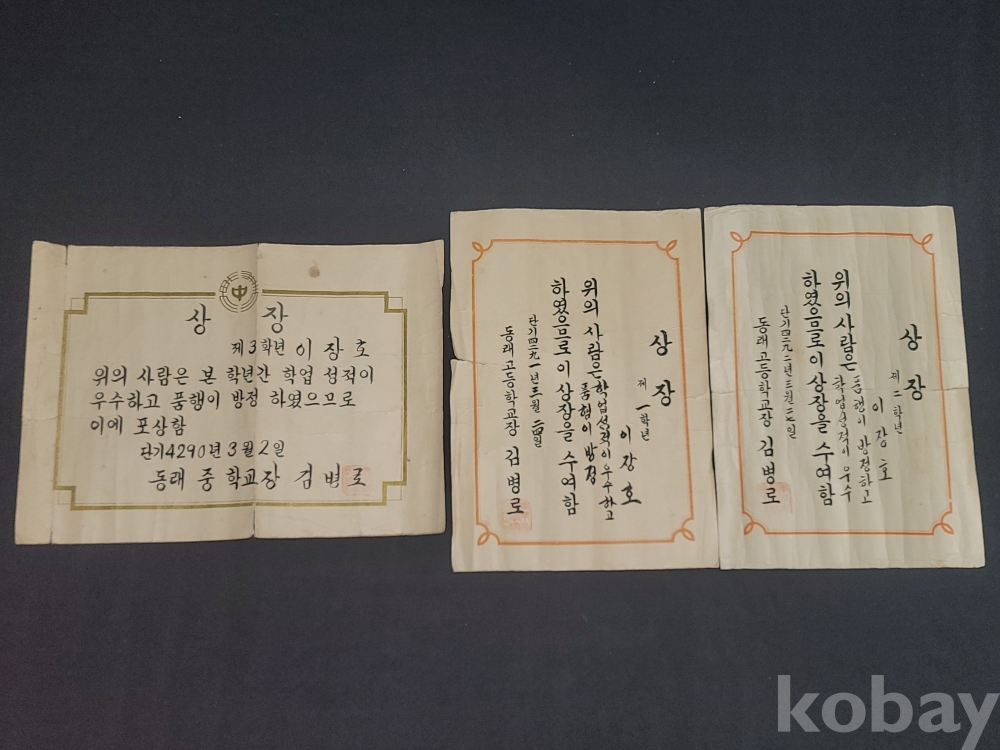 中
상 장
제3학년 이장호
위의 사람은 본 학년간 학업 성적이
우수하고 품행이 방정 하였으므로
이에 포상함
단기4290년 3월 2일
동래 중 학교장 김병로
상장
제一학년
이장호
위의 사람은 학업성적이 우수하고
품행이 방정
하였으므로 이 상장을 수여함
단기四二九一년三월二四일
동래고등학교장 김병로
상장
제二학년
이장호
위의 사람은 품행이 방정하고
학업성적이 우수
하였으므로 이 상장을 수여함
단기四二九二년三월二七일
동래고등학교장 김병로
kobay